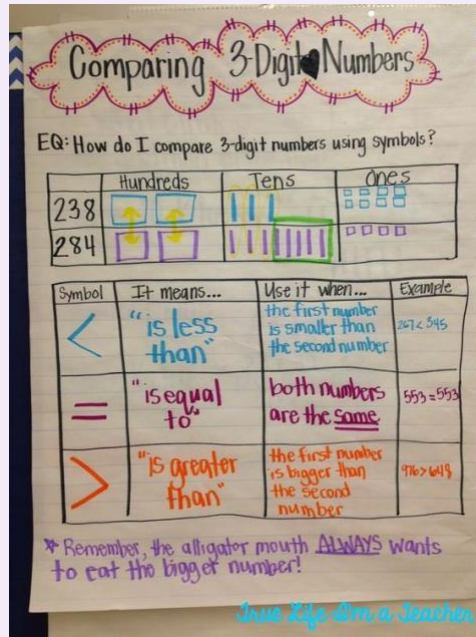 Comparing 3-Digit Numbers
EQ: How do I compare 3-digit numbers using symbols?
Hundreds Tens Ones
238
284
Symbol It means... Use it when... Example
< "is less than" the first number is smaller than the second number 267 < 345
= "is equal to" both numbers are the same 553 = 553
> "is greater than" the first number is bigger than the second number 976 > 648
* Remember, the alligator mouth ALWAYS wants
to eat the bigger number!
True Life I'm a Teacher